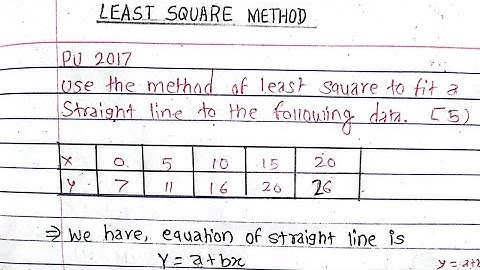 LEAST SQUARE METHOD
PU 2017
Use the method of least square to fit a
straight line to the following data. [5)
X 0 5 10 15 20
Y 7 11 16 20 26
⇒ We have, equation of straight line is
Y = a+bx
y = a+